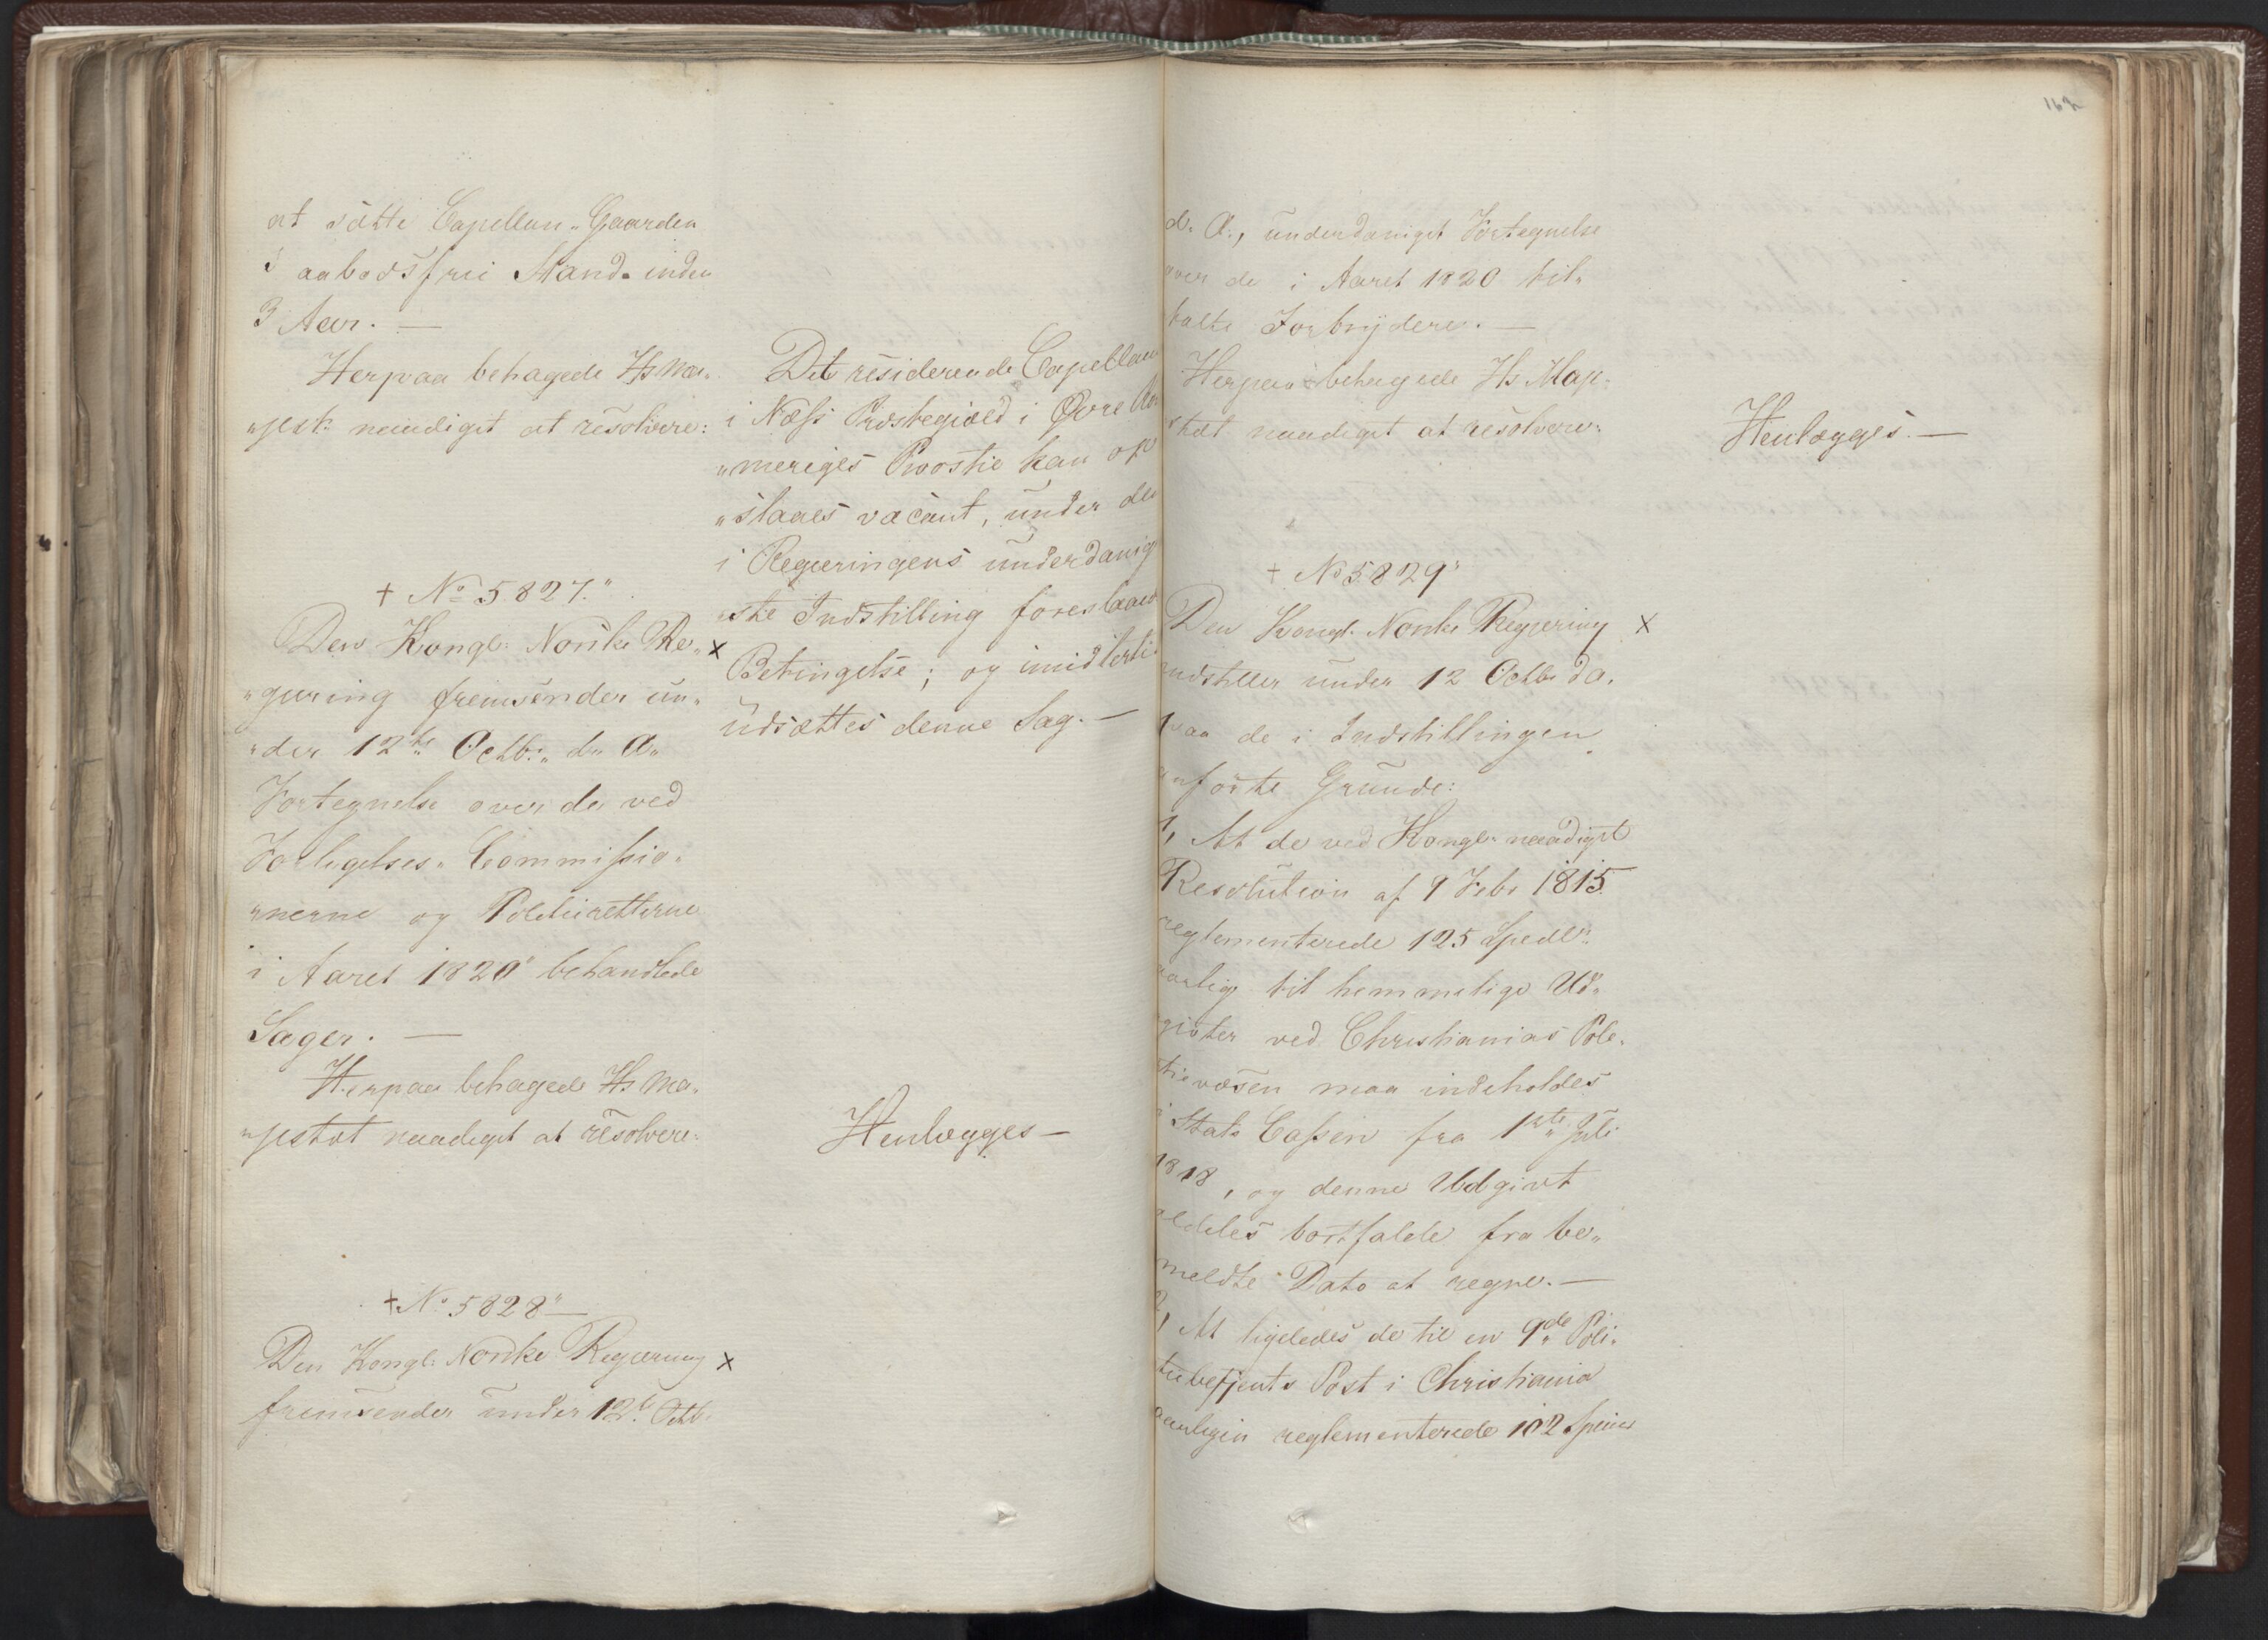 at sætte Capellan-Gaarden
i aabodsfrie Stand inden
3 Aar. —
Herpaa behagede Hs Ma-
"jest: naadigst at resolvere:
Det residerende Capellan
i Næss Præstegiæld i Øvre Ro
"meriges Provstie kan op
"slaaes vacant, under de
i Regieringens underdanig
"ste Indstilling foreslaaet
Betingelse; og imidlerti
udsættes denne Sag. —
+ No 5827."
Den Kongl: Norske Re- x
"giering fremsender un-
"der 12te Octb: d. A.
Fortegnelse over de ved
Forligelses-Commissio-
"nerne og Politieretterne
i Aaret 1820 behandlede
Sager. —
Herpaa behagede Hs Ma-
"jestæt naadigst at resolvere:
Henlægges —
+ No 5828" —
Den Kongl: Norske Regiering x
fremsender under 12te Octb:
162
d. A., underdanigst Fortegnelse
over de i Aaret 1820 til-
talte Forbrydere. —
Herpaa behagede Hs Maj-
stæt naadigst at resolvere:
Henlægges. —
+ No 5829"
Den Kongl. Norske Regiering x
indstiller under 12 Octbr d. A.
paa de i Indstillingen
anførte Grunde:
1, At de ved Kongl. naadigst
Resolution af 9 Febr 1815
reglementerede 125 Spedlr:
aarlig til hemmelige Ud-
givter ved Christianias Poli-
tievæsen maa indeholdes
i Stats Cassen fra 1ste Juli
1818, og denne Udgivt
aldeles bortfalde fra be-
meldte Dato at regne. —
2, At ligeledes de til en 9de Poli-
tiebetjents Post i Christiania
aarligen reglementerede 102 Species